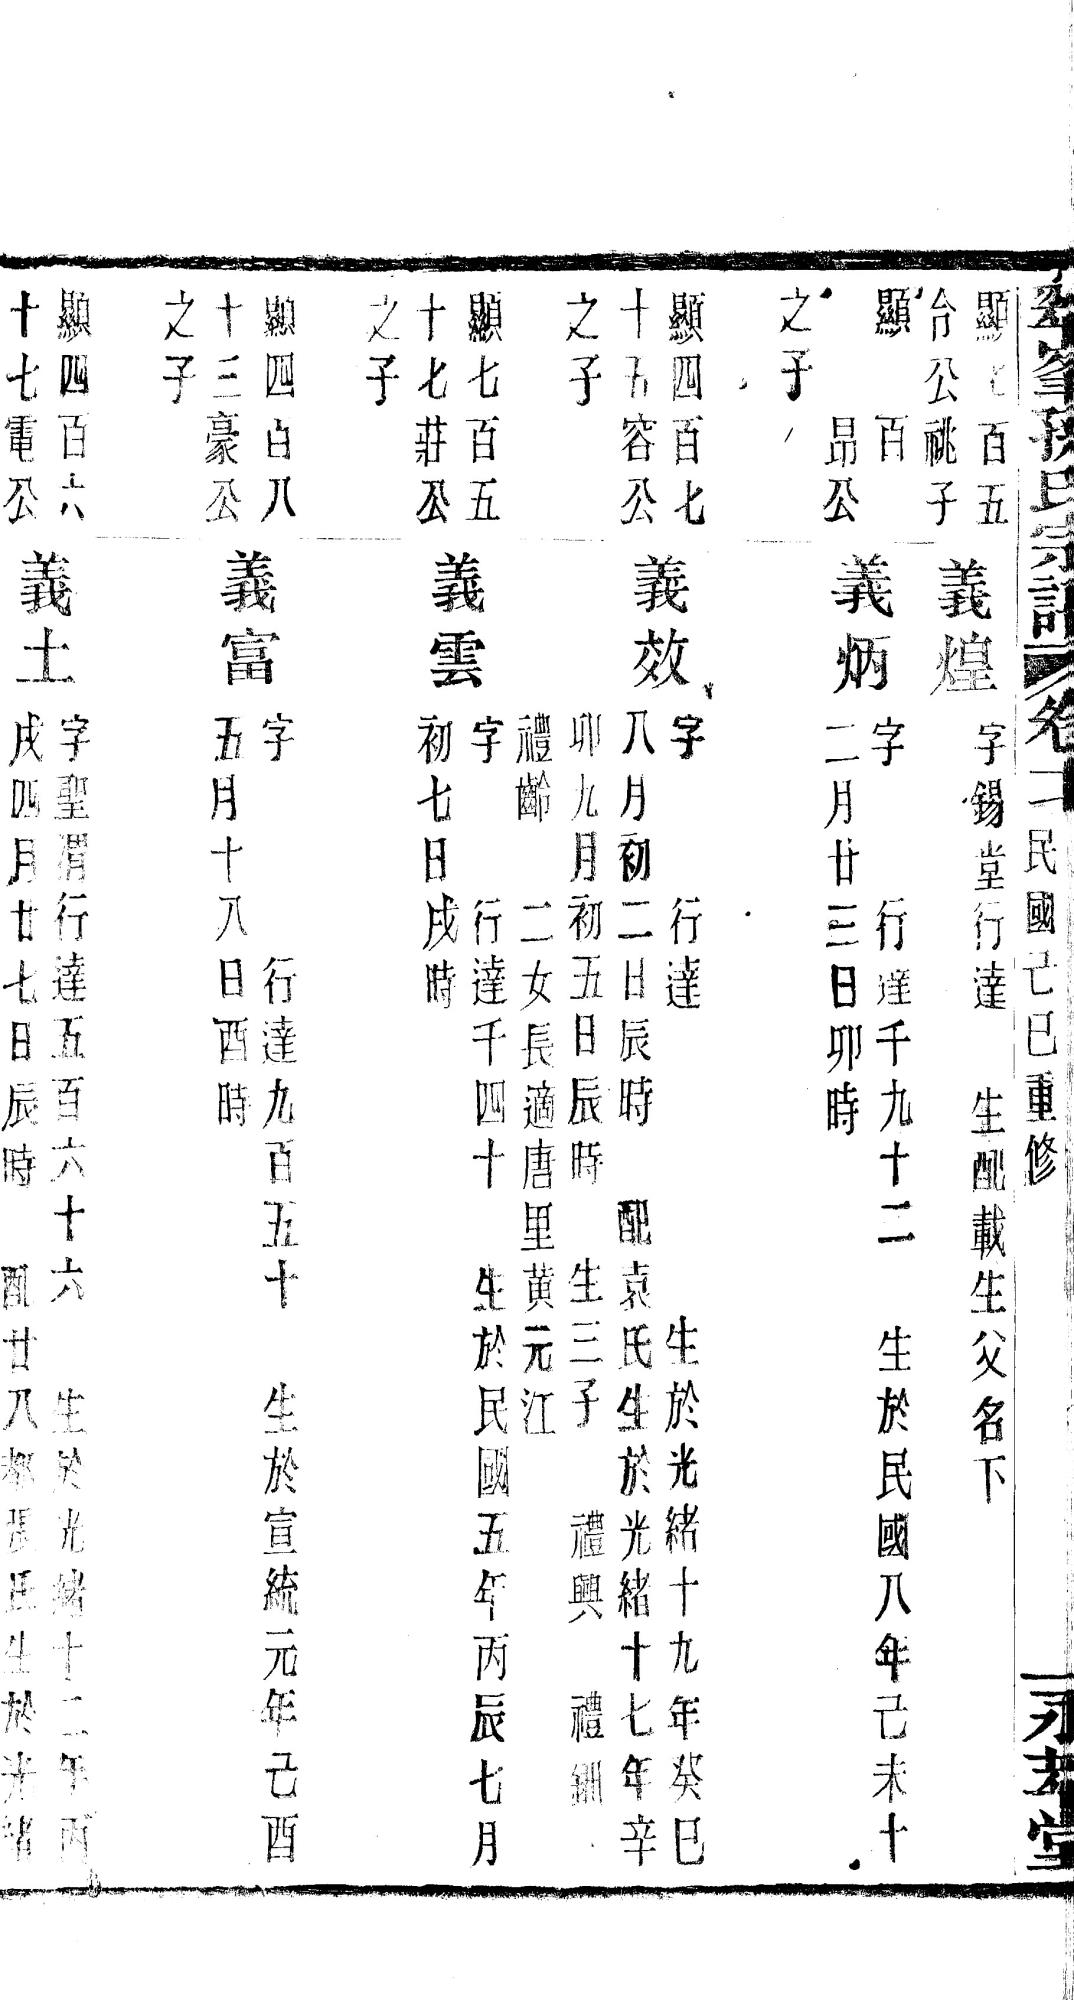 孫氏宗譜 卷十二 民國己巳重修 永 堂
顯七百五
台公祧子
義煌
字錫堂行達 生配載生父名下
顯 百
昂公
之子
義炳
字 行達千九十二 生於民國八年己未十
二月廿三日卯時
顯四百七
十五容公
之子
義效
字 行達 生於光緒十九年癸巳
八月初二日辰時 配袁氏生於光緒十七年辛
卯九月初五日辰時 生三子 禮興 禮釧
禮齡 二女長適唐里黃元江
顯七百五
十七莊公
之子
義雲
字 行達千四十 生於民國五年丙辰七月
初七日戌時
顯四百八
十三豪公
之子
義富
字 行達九百五十 生於宣統元年己酉
五月十八日酉時
顯四百六
十七電公
義士
字聖渭行達五百六十六 生於光緒十二年丙
戌四月廿七日辰時 配廿八都張氏生於光緒